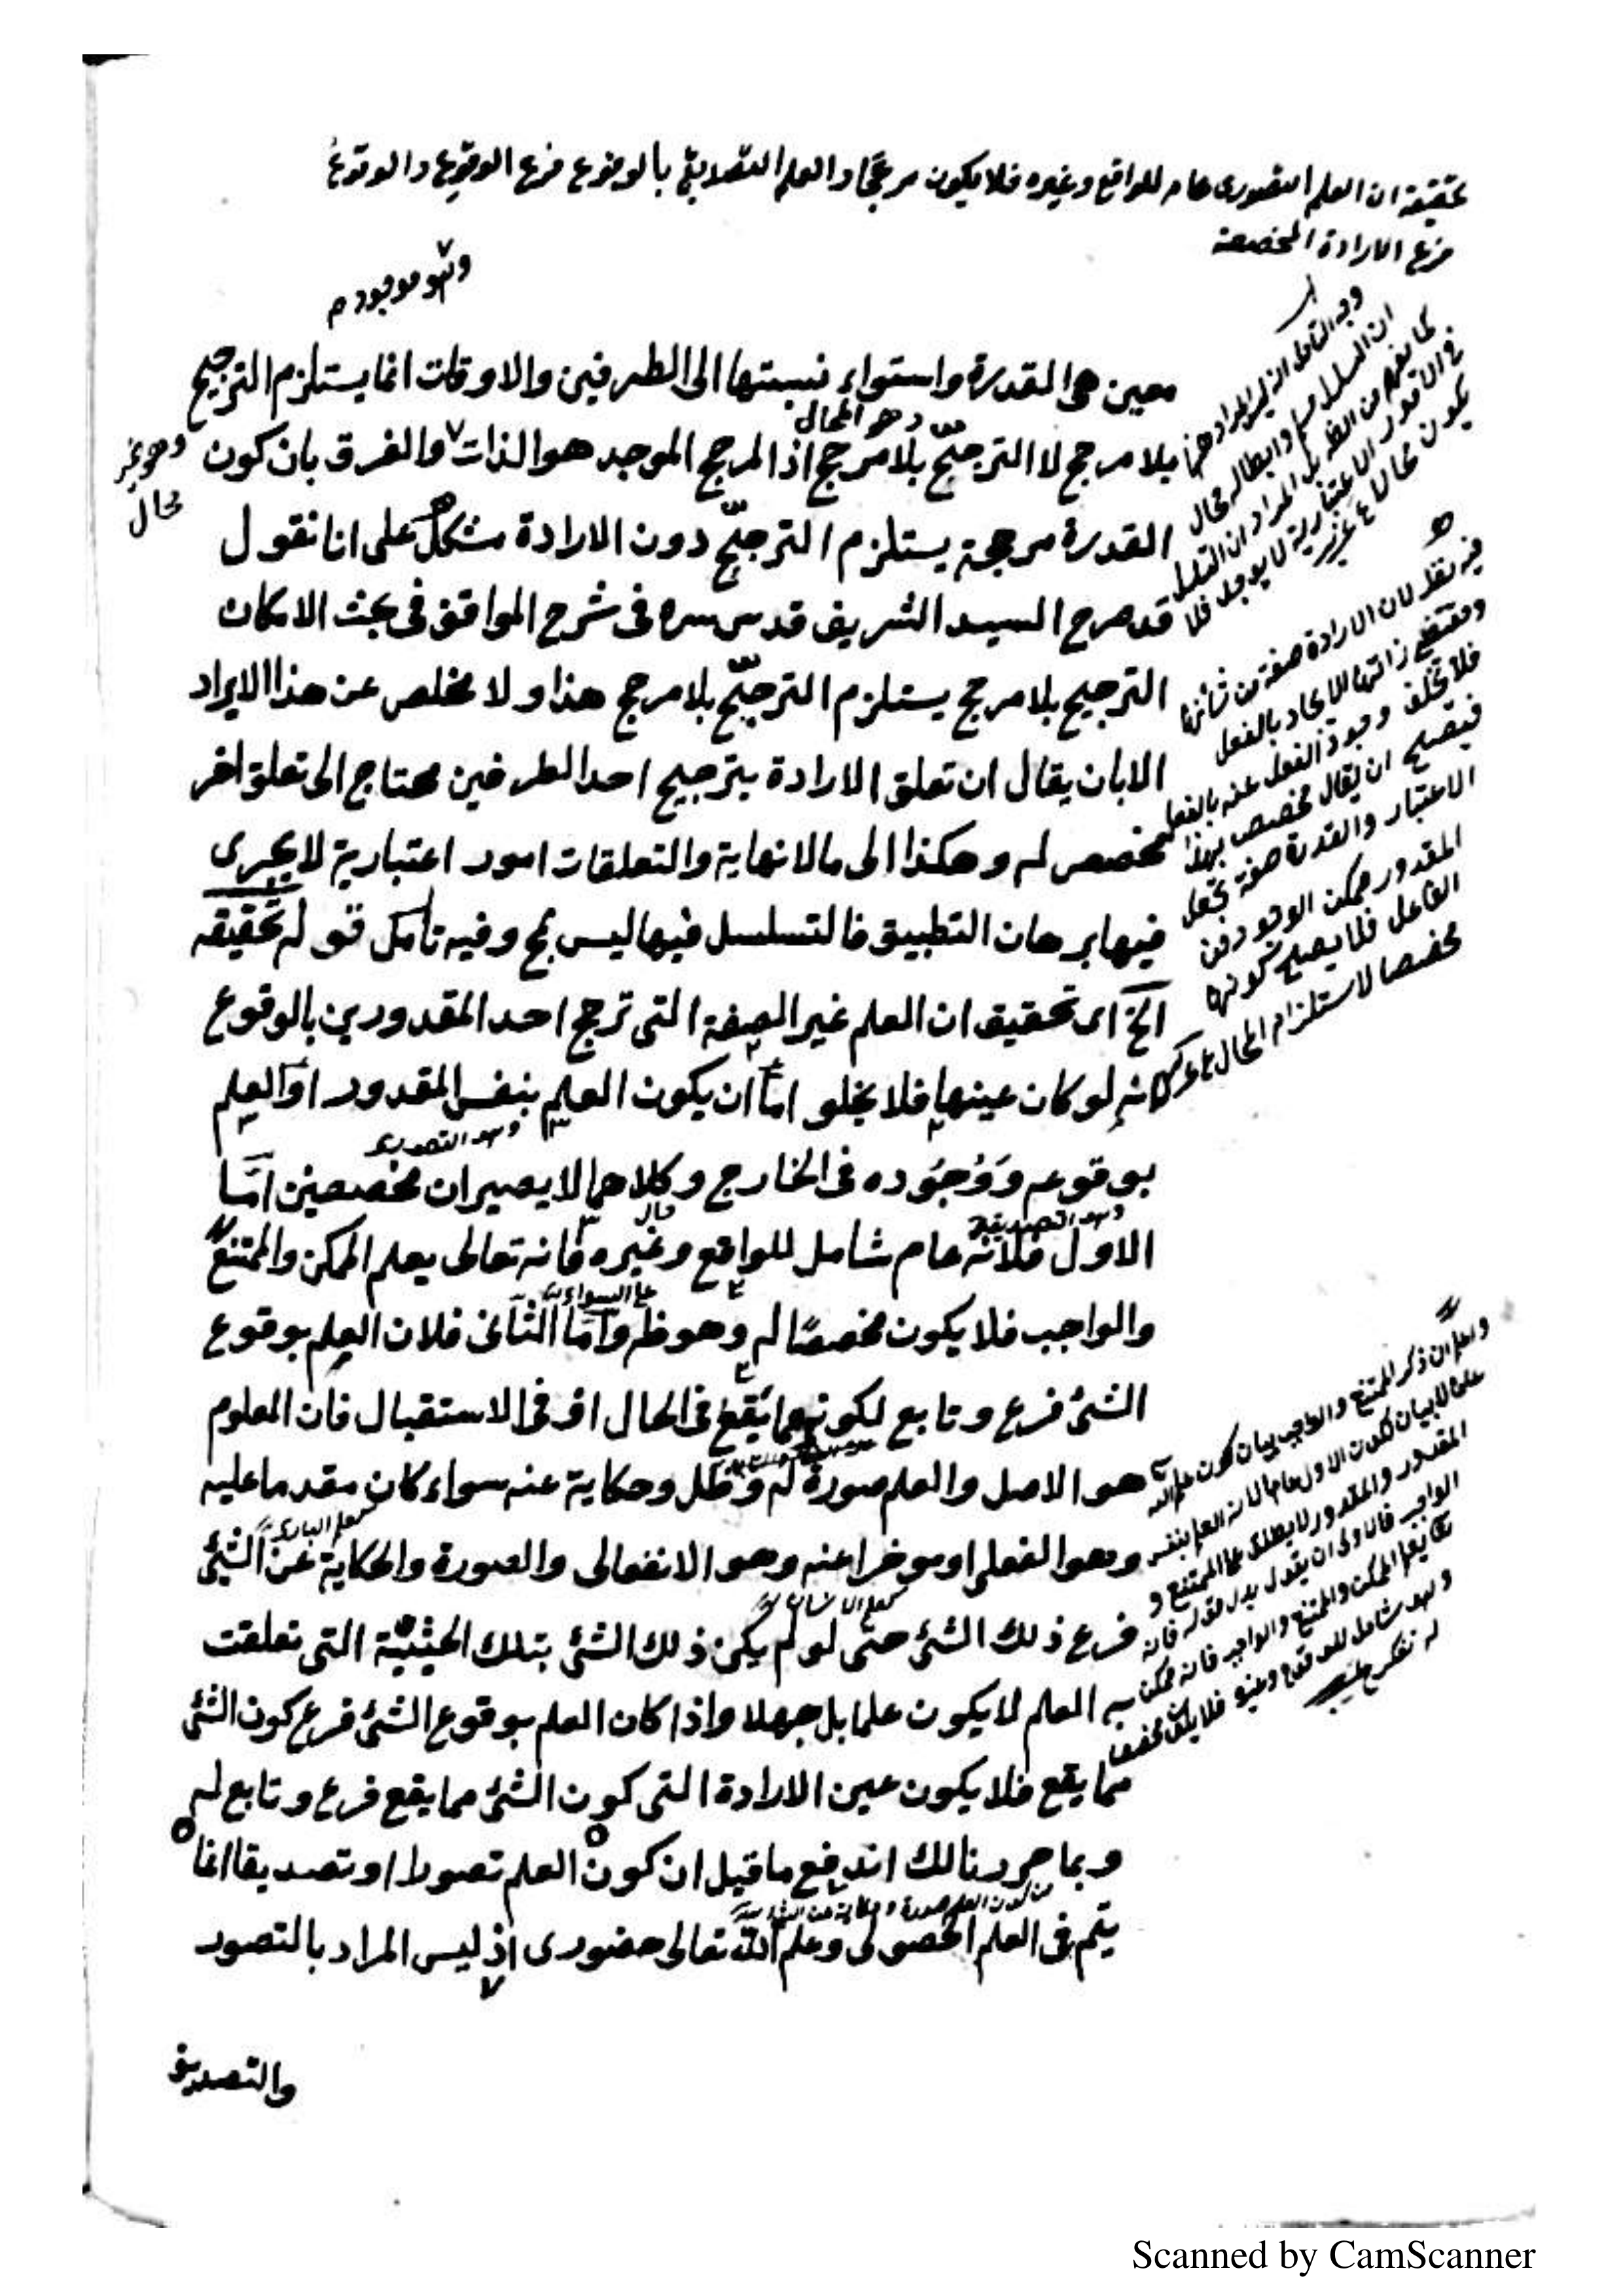 تحقيقه ان العلم التصورى عام للواقع وغيره فلا يكون مرجحا والعلم التصديقى بالوقوع فرع الوقوع والوقوع
فرع الارادة المخصصة
وهو موجود م
معين هى القدرة واستواء نسبتها الى الطرفين والاوقات انما يستلزم الترجيح
وهو المحال
بلا مرجح لا الترجّح بلا مرجح اذ المرجح الموجد هو الذات والفرق بان كون
وهو غير
محال
القدرة مرجحة يستلزم الترجّح دون الارادة مشكل على انا نقول
قد صرح السيد الشريف قدس سره فى شرح المواقف فى بحث الامكان
الترجيح بلا مرجح يستلزم الترجّح بلا مرجح هذا ولا مخلص عن هذا الايراد
الا بان يقال ان تعلق الارادة بترجيح احد الطرفين محتاج الى تعلق اخر
مخصص له وهكذا الى مالا نهاية والتعلقات امور اعتبارية لا يجرى
فيها برهان التطبيق فالتسلسل فيها ليس بمح وفيه تأمل قوله تحقيقه
الخ اى تحقيق ان العلم غير الصفة التى ترجح احد المقدورين بالوقوع
انه لو كان عينها فلا يخلو اما ان يكون العلم بنفس المقدور او العلم
وهو التصورى
بوقوعه ووجوده فى الخارج وكلاهما لا يصيران مخصصين امّا
وهو التصديقى
الاول فلانه عام شامل للواقع وغيره فانه تعالى يعلم الممكن والممتنع
على السواء
والواجب فلا يكون مخصصًا له وهو ظ واما الثانى فلان العلم بوقوع
الشئ فرع وتابع لكونه مما يقع فى الحال او فى الاستقبال فان المعلوم
هو الاصل والعلم صورة له وظل وحكاية عنه سواء كان مقدما عليه
كعلم البارى
وهو الفعلى او موخرا عنه وهو الانفعالى والصورة والحكاية عن الشئ
كعلم الانسان
فرع ذلك الشئ حتى لو لم يكن ذلك الشئ بتلك الحيثيّة التى تعلقت
به العلم لا يكون علما بل جهلا واذا كان العلم بوقوع الشئ فرع كون الشئ
مما يقع فلا يكون عين الارادة التى كون الشئ مما يقع فرع وتابع له
وبما حررنا لك اندفع ما قيل ان كون العلم تصورا او تصديقا انما
من كون العلم صورة وحكاية عن الشئ
يتم فى العلم الحصولى وعلم الله تعالى حضورى اذ ليس المراد بالتصور
والتصديق
وجه التأمل انه ليس المراد ههنا
ان التسلسل مسلم وابطاله محال
كما يفهم من الظ بل المراد ان التسلسل
فى الامور الاعتبارية لا يوجد فلا
يكون محالا
فيه نظر لان الارادة صفة من شأنها
ومقتضى ذاتها الايجاد بالفعل
فلا تخلف وجود الفعل عنه بالفعل
فيصح ان يقال مخصص بهذا
الاعتبار والقدرة صفة تجعل
المقدور ممكن الوجود من
الفاعل فلا يصلح كونها
مخصصا لاستلزام المحال
واعلم ان ذكر الممتنع والواجب بيان كون علم الله
عاما لا بيان لكون الاول عاما لان العلم بنفس
المقدور والمقدور لا يطلق على الممتنع و
الواجب فالاولى ان يقول بدل قوله فانه
تعالى يعلم الممكن والممتنع والواجب فانه ممكن
وهو شامل للواقع وغيره فلا يكون مخصصا
له تفكر
Scanned by CamScanner